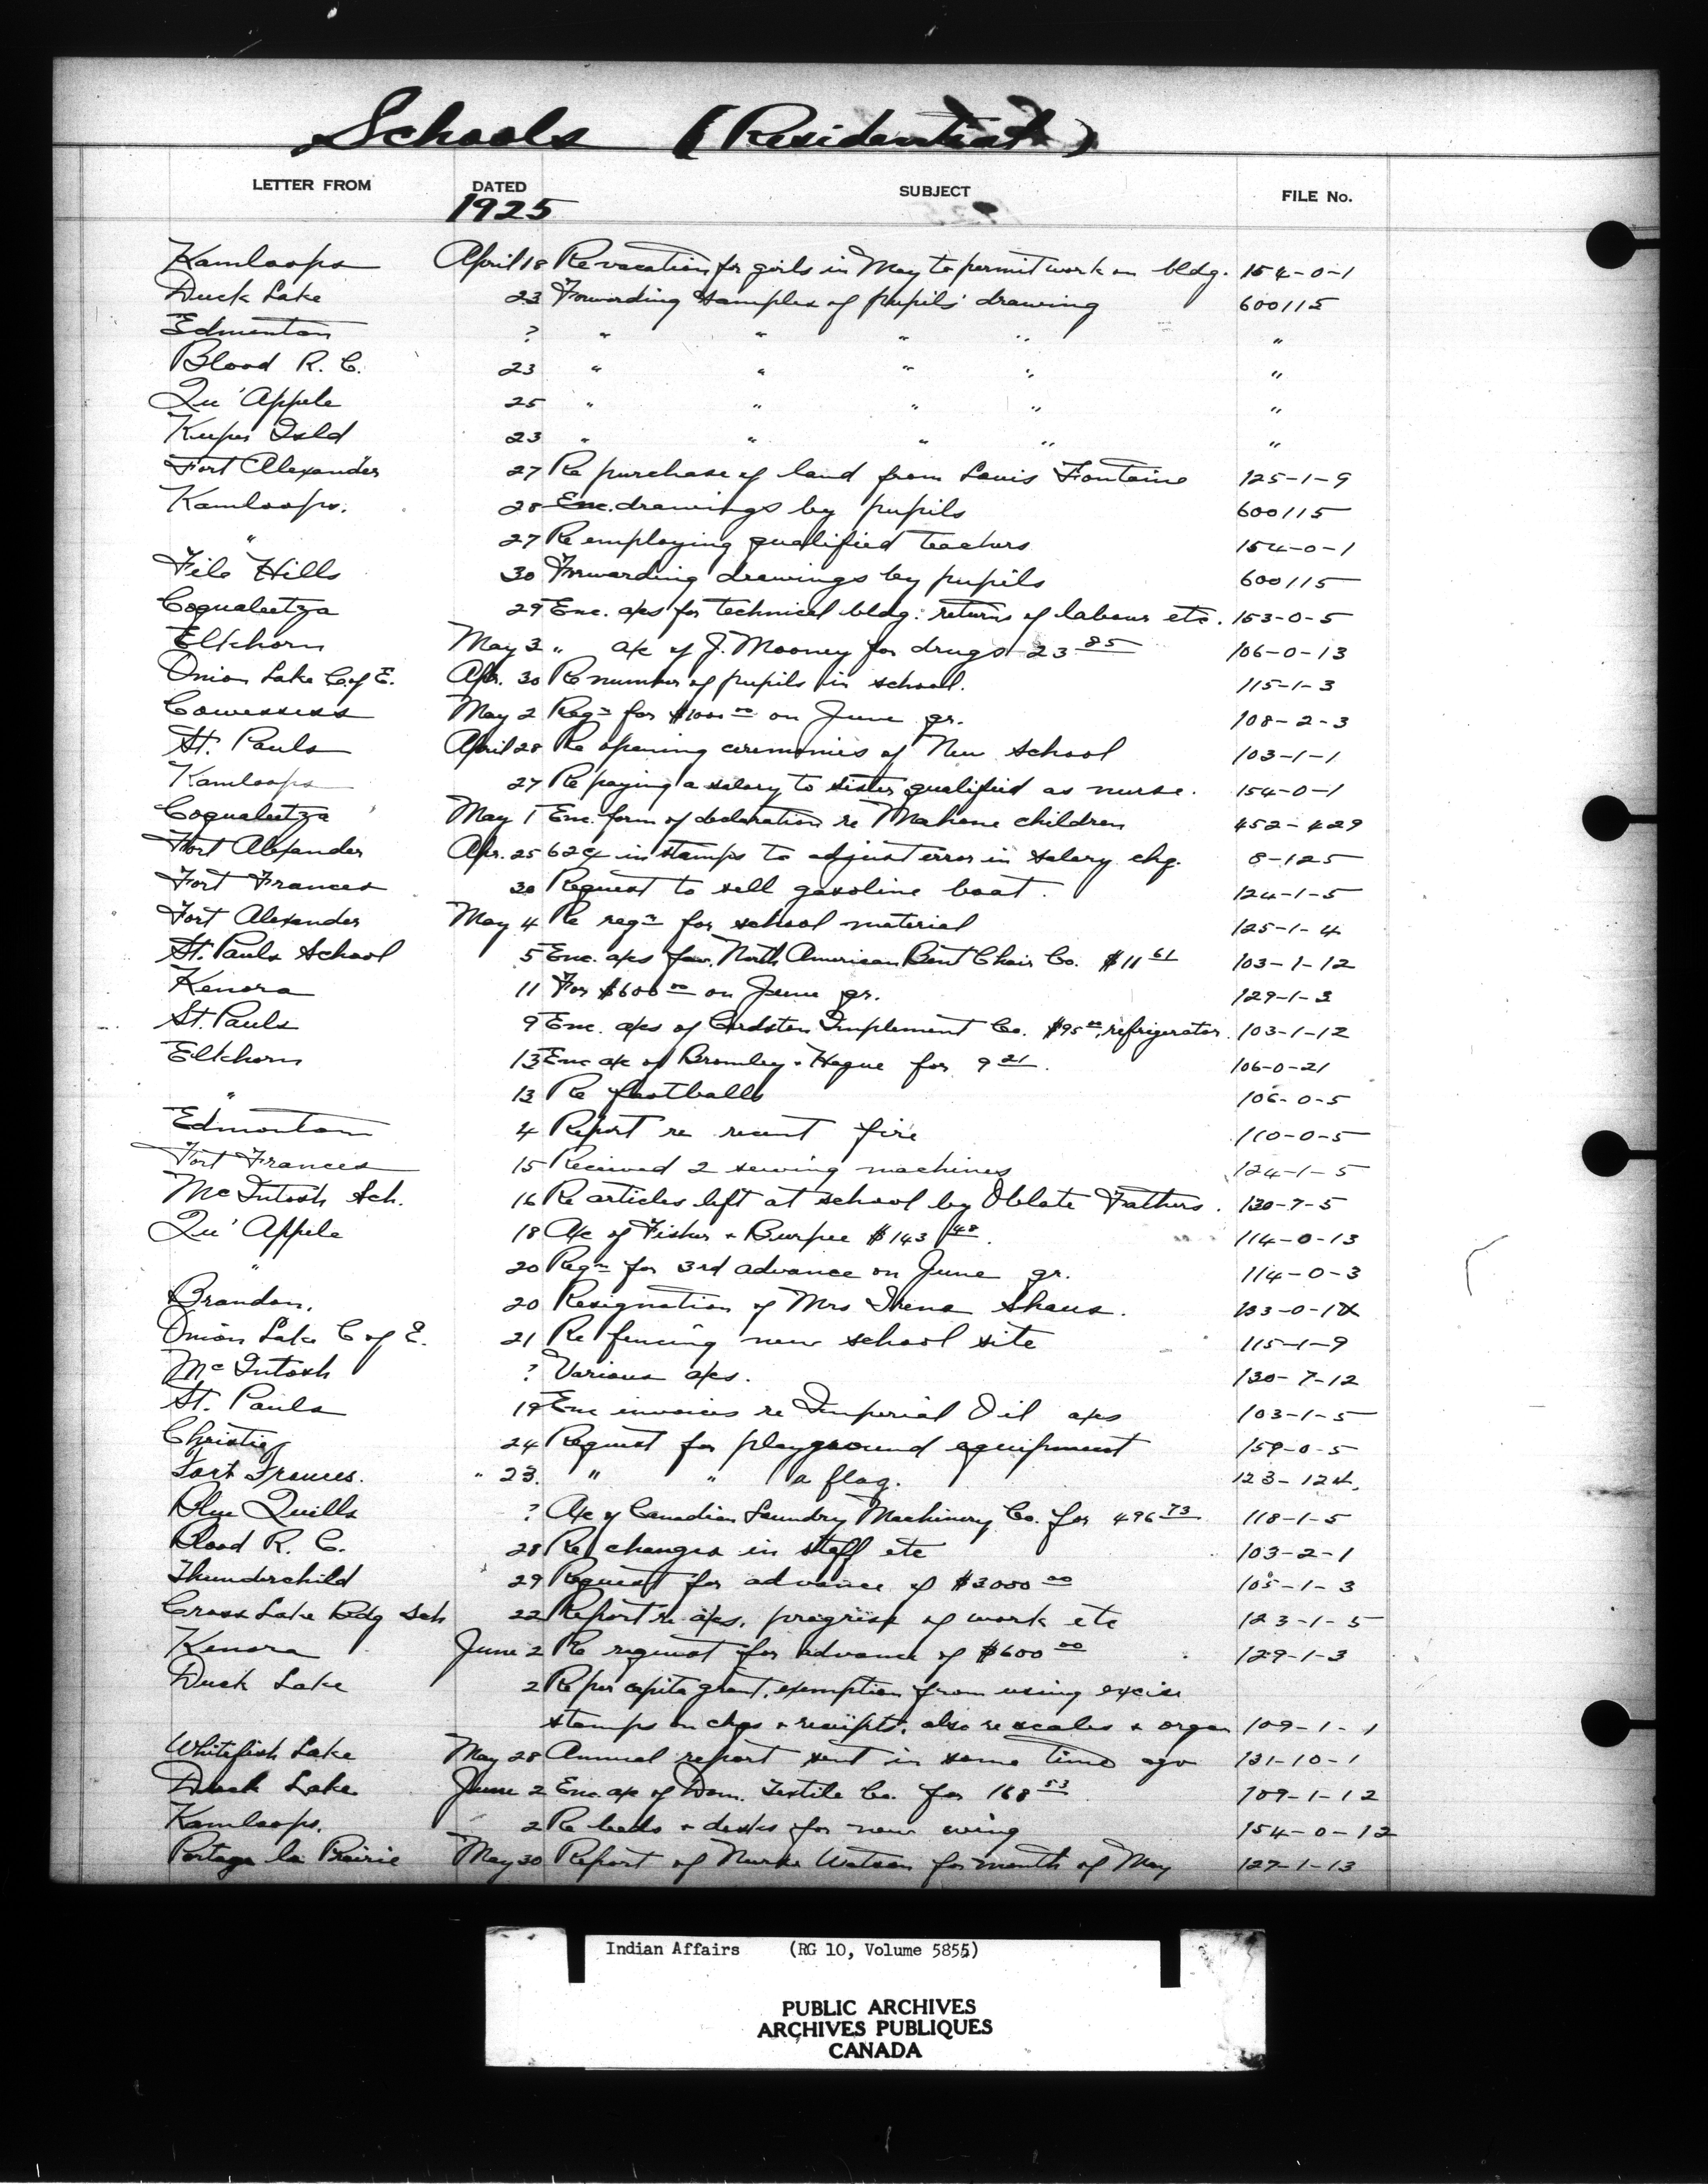 Schools (Residential)
LETTER FROM DATED SUBJECT FILE No.
1925
Kamloops April 18 Re vacation for girls in May to permit work on bldg. 154-0-1
Duck Lake 23 Forwarding samples of pupils' drawing 600115
Edmonton ? " " " " "
Blood R. C. 23 " " " " "
Qu'Appele 25 " " " " "
Kuper Isld 23 " " " " "
Fort Alexander 27 Re purchase of land from Louis Fontaine 125-1-9
Kamloops. 28 Enc. drawings by pupils 600115
" 27 Re employing qualified teachers 154-0-1
File Hills 30 Forwarding drawings by pupils 600115
Coqualeetza 29 Enc. a/cs for technical bldg: returns of labour etc. 153-0-5
Elkhorn May 3 " a/c of J. Mooney for drugs 23 85 106-0-13
Onion Lake C. of E. Apr. 30 Re number of pupils in school. 115-1-3
Cowessess May 2 Reqn for $1000 00 on June gr. 108-2-3
St. Pauls April 28 Re opening ceremonies of New School 103-1-1
Kamloops 27 Re paying a salary to sister qualified as nurse. 154-0-1
Coqualeetza May 1 Enc. form of declaration re Mahone children 452-429
Fort Alexander Apr. 25 62¢ in stamps to adjust error in salary chq. 8-125
Fort Frances 30 Request to sell gasoline boat. 124-1-5
Fort Alexander May 4 Re reqn for school material 125-1-4
St. Pauls School 5 Enc. a/cs fav. North American Bent Chair Co. $11 61 103-1-12
Kenora 11 For $600 00 on June gr. 129-1-3
St. Pauls 9 Enc. a/cs of Cardston Implement Co. $95 00, refrigerator. 103-1-12
Elkhorn 13 Enc a/c of Bromley & Hague for 9 21. 106-0-21
" 13 Re footballs 106-0-5
Edmonton 4 Report re recent fire 110-0-5
Fort Frances 15 Received 2 sewing machines 124-1-5
McIntosh Sch. 16 Re articles left at school by Oblate Fathers. 130-7-5
Qu'Appele 18 A/c of Fisher & Burpee $143 48. 114-0-13
" 20 Reqn for 3rd advance on June gr. 114-0-3
Brandon. 20 Resignation of Mrs Irena Shaus.
Onion Lake C of E. 21 Re fencing new school site 115-1-9
McIntosh ? Various a/cs. 130-7-12
St. Pauls 19 Enc invoices re Imperial Oil a/cs 103-1-5
Christie 24 Request for playground equipment 159-0-5
Fort Frances. " 23. " " a flag. 123-124.
Blue Quills ? A/c of Canadian Laundry Machinery Co. for 496 73 118-1-5
Blood R. C. 28 Re changes in staff etc 103-2-1
Thunderchild 29 Request for advance of $3000 00 105-1-3
Cross Lake Bdg Sch 22 Report re a/cs, progress of work etc 123-1-5
Kenora June 2 Re request for advance of $600 00 129-1-3
Duck Lake 2 Re per capita grant, exemption from using excise
stamps on chqs & receipts, also re scales & organ 109-1-1
Whitefish Lake May 28 Annual report sent in some time ago 131-10-1
Duck Lake June 2 Enc. a/c of Dom. Textile Co. for 168 53 109-1-12
Kamloops. 2 Re beds & desks for new wing 154-0-12
Portage la Prairie May 30 Report of Nurse Watson for month of May 127-1-13
Indian Affairs (RG 10, Volume 5855)
PUBLIC ARCHIVES
ARCHIVES PUBLIQUES
CANADA